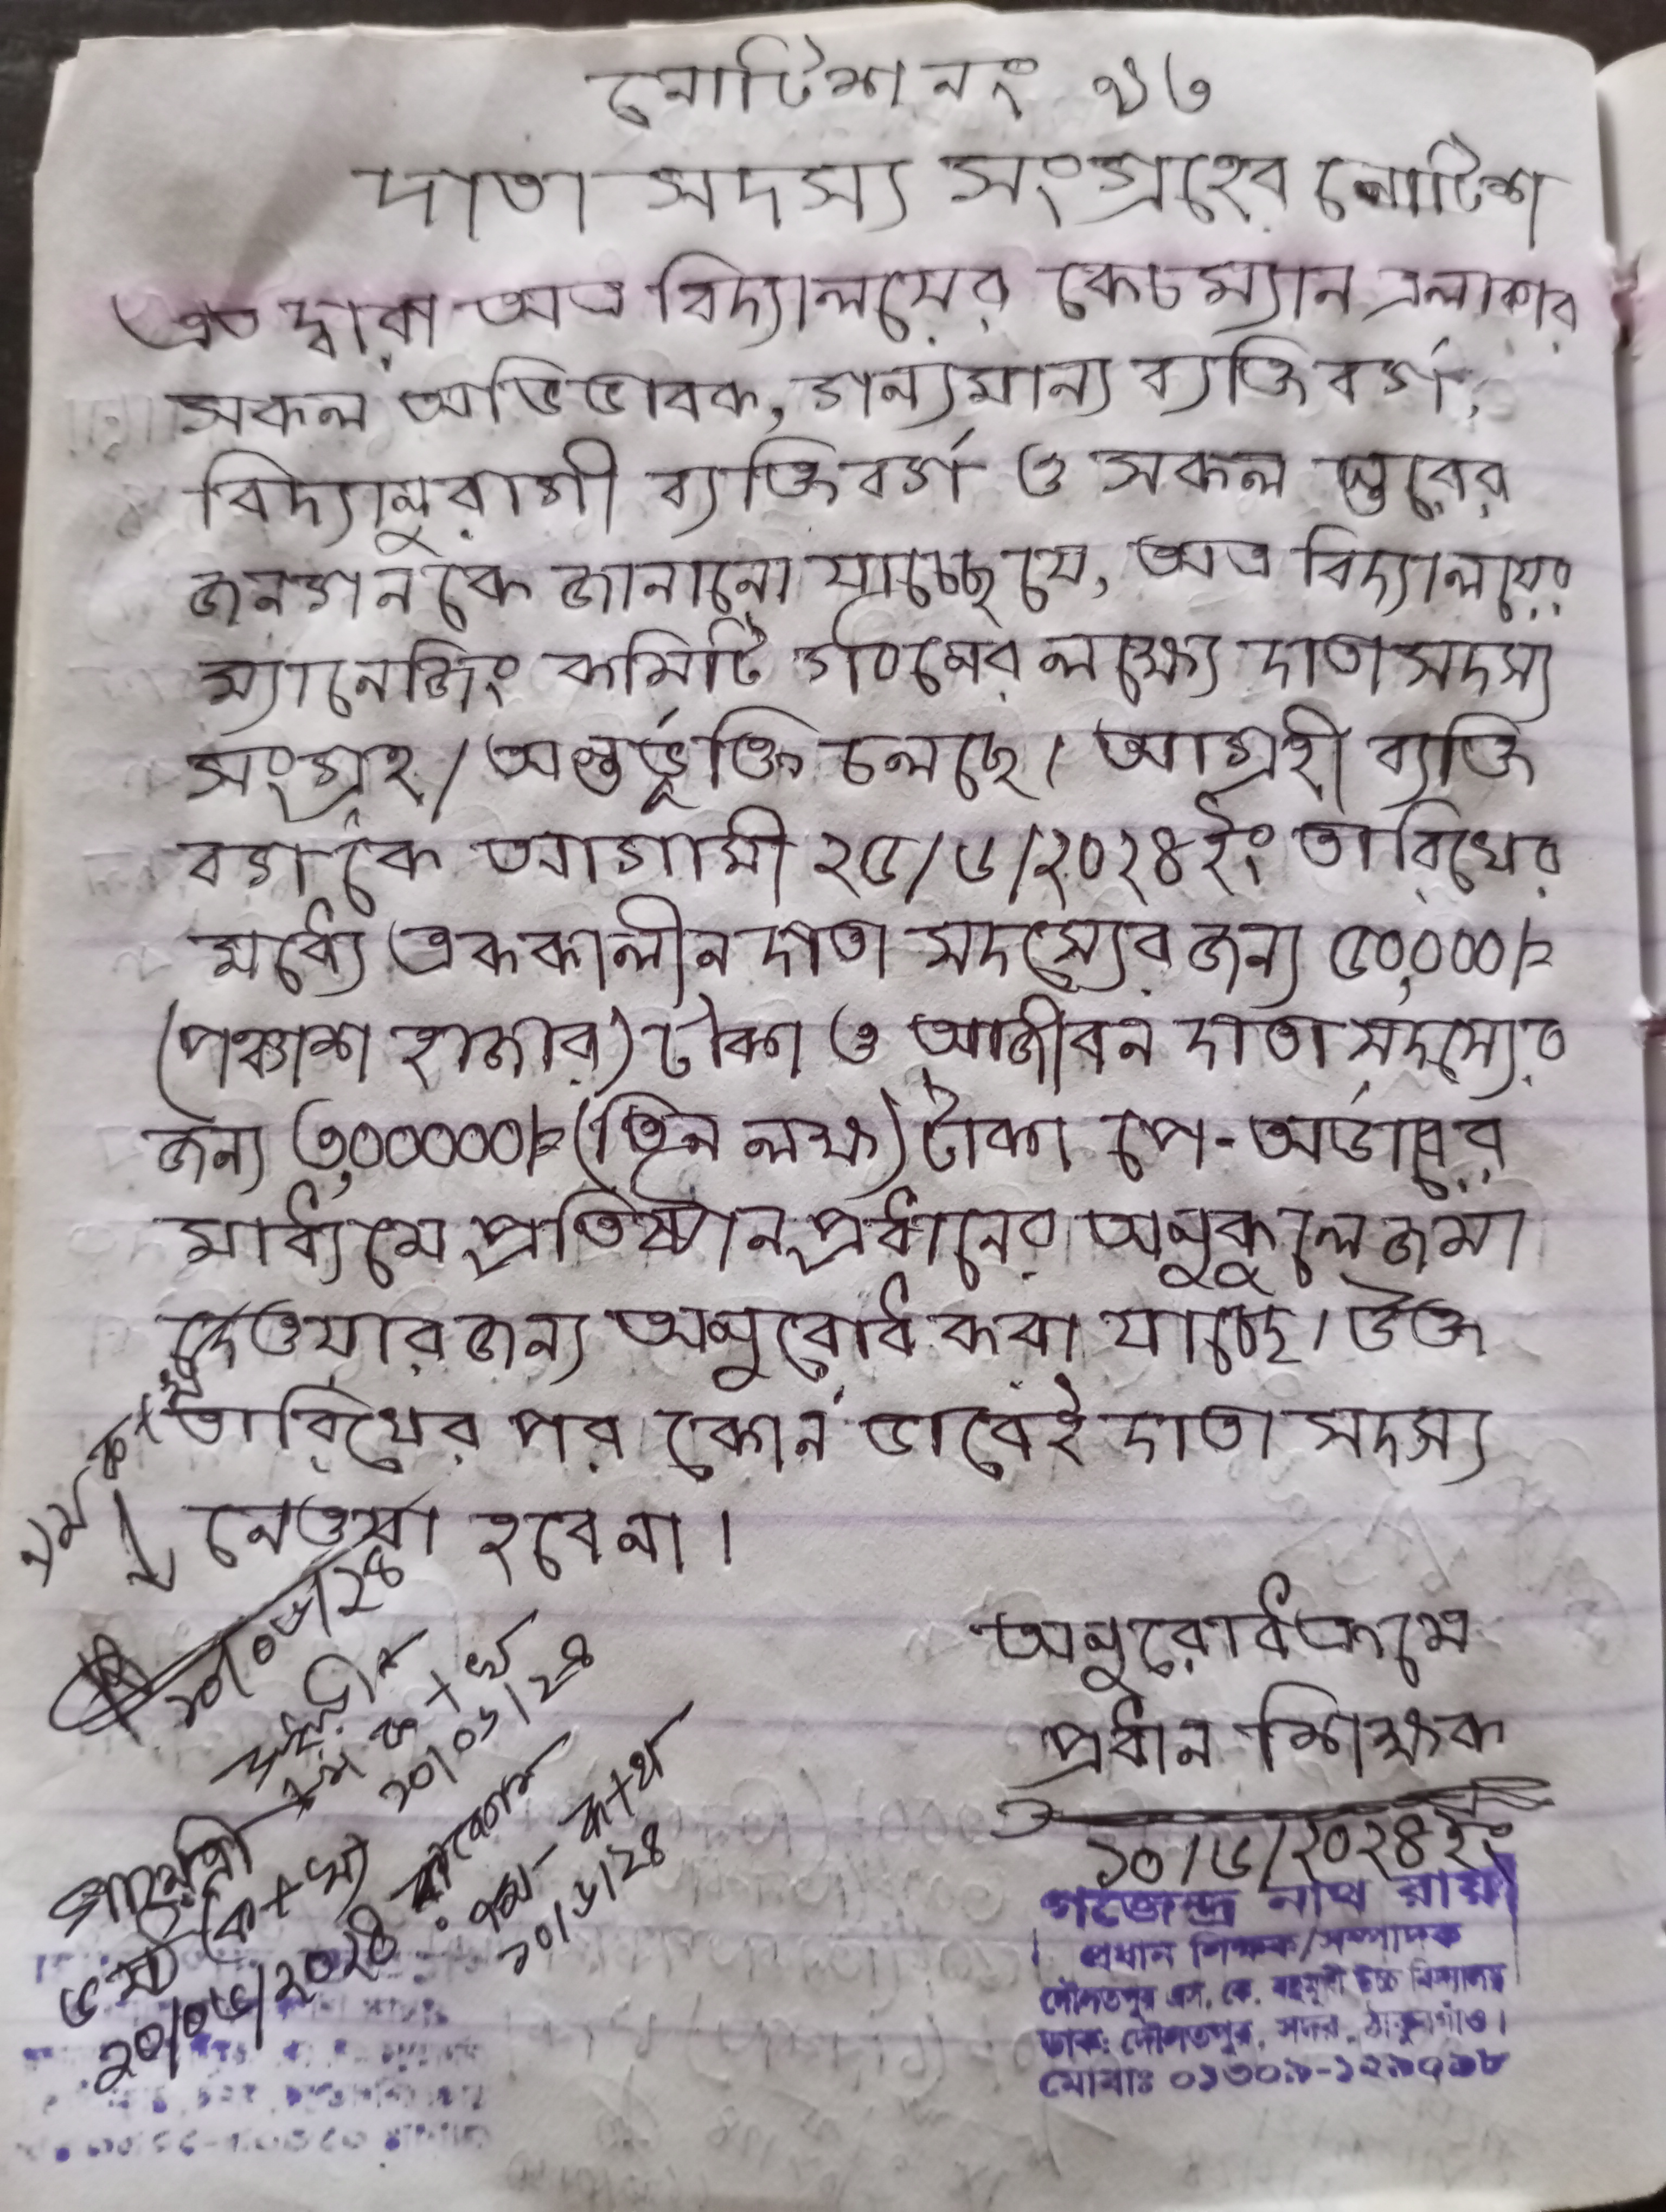 নোটিশ নং ১৬
দাতা সদস্য সংগ্রহের নোটিশ
এত দ্বারা অত্র বিদ্যালয়ের কেচম্যান এলাকার
সকল অভিভাবক, গন্যমান্য ব্যক্তি বর্গ,
বিদ্যানুরাগী ব্যক্তি বর্গ ও সকল স্তরের
জনগনকে জানানো যাচ্ছে যে, অত্র বিদ্যালয়ের
ম্যানেজিং কমিটি গঠনের লক্ষ্যে দাতা সদস্য
সংগ্রহ/অন্তর্ভূক্তি চলেছে। আগ্রহী ব্যক্তি
বর্গকে আগামী ২৫/৬/২০২৪ইং তারিখের
মধ্যে এককালীন দাতা সদস্যের জন্য ৫০,০০০/=
(পঞ্চাশ হাজার) টাকা ও আজীবন দাতা সদস্যের
জন্য ৩,০০০০০/= (তিন লক্ষ) টাকা পে-অর্ডারের
মাধ্যমে প্রতিষ্ঠান প্রধানের অনুকুলে জমা
দেওয়ার জন্য অনুরোধ করা যাচ্ছে। উক্ত
তারিখের পর কোন ভাবেই দাতা সদস্য
নেওয়া হবে না।
১০/০৬/২৪
১০/০৬/২৪
১০/০৬/২০২৪
১০/৬/২৪
অনুরোধক্রমে
প্রধান শিক্ষক
১০/৬/২০২৪ইং
গজেন্দ্র নাথ রায়
প্রধান শিক্ষক/সম্পাদক
দৌলতপুর এস. কে. বহুমুখী উচ্চ বিদ্যালয়
ডাক: দৌলতপুর, সদর, ঠাকুরগাঁও।
মোবাঃ ০১৩০৯-১২৯৭৯৮